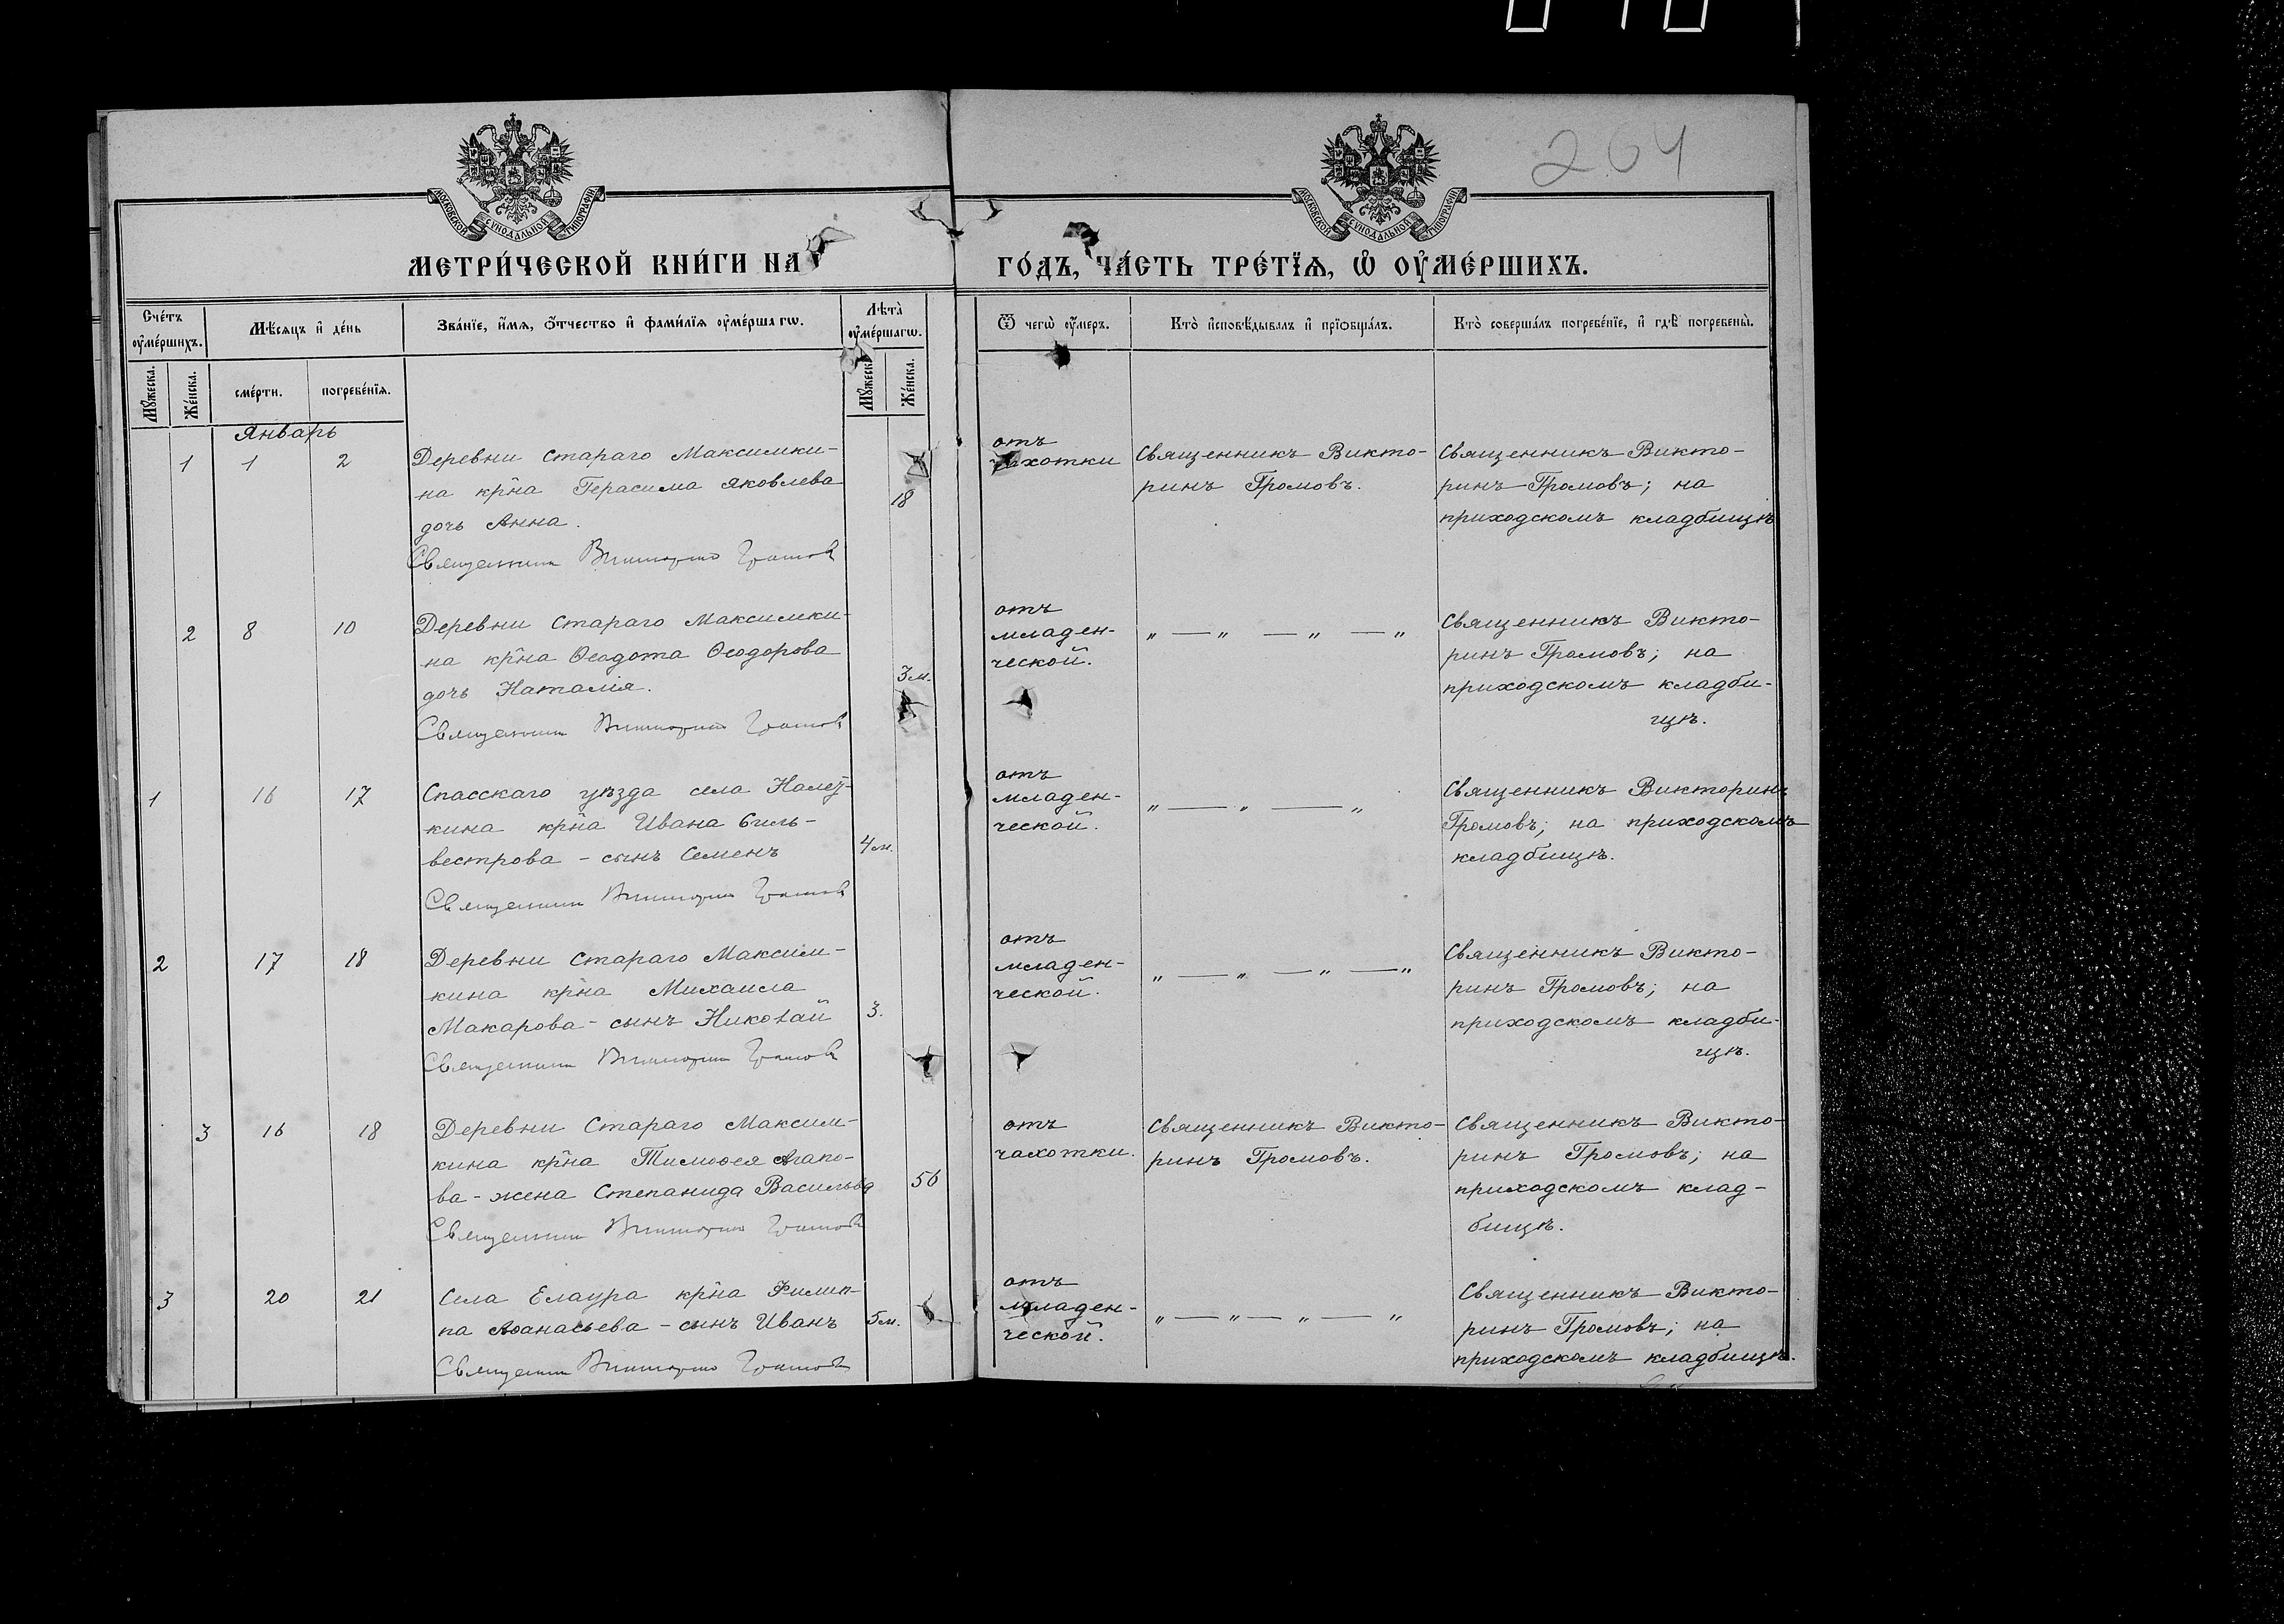 204
МОСКОВСКОЙ СУНОДАЛЬНОЙ ТИПОГРАФІИ
МОСКОВСКОЙ СУНОДАЛЬНОЙ ТИПОГРАФІИ
МЕТРИ́ЧЕСКОЙ КНИ́ГИ НА
ГО́ДЪ, ЧА́СТЬ ТРЕ́ТЇѦ, Ѡ҆ ОУ҆МЕ́РШИХЪ.
Сче́тъ
оу҆ме́ршихъ.
Мѣ́сяцъ и҆ де́нь
Зва́нїе, и҆́мѧ, о҆́тчество и҆ фами́лїѧ оу҆ме́ршагѡ.
Лѣ́та
оу҆ме́ршагѡ.
Ѿ чегѡ̀ оу҆́меръ.
Кто̀ и҆сповѣ́дывалъ и҆ прїѡбща́лъ.
Кто̀ соверша́лъ погребе́нїе, и҆ гдѣ̀ погребены̀.
Мꙋ́жеска.
Же́нска.
сме́рти.
погребе́нїѧ.
Мꙋ́жеска
Же́нска.
Январь
1
1
2
Деревни Стараго Максимки-
на кр̃на Герасима Яковлева
дочь Анна.
Священникъ Викторинъ Громовъ
18
отъ
чахотки
Священникъ Викто-
ринъ Громовъ.
Священникъ Викто-
ринъ Громовъ; на
приходскомъ кладбищѣ
2
8
10
Деревни Стараго Максимки-
на кр̃на Ѳеодота Ѳеодорова
дочь Наталія.
Священникъ Викторинъ Громовъ
3м.
отъ
младен-
ческой.
„ — „ — „ — „
Священникъ Викто-
ринъ Громовъ; на
приходскомъ кладби-
щѣ.
1
16
17
Спасскаго уѣзда села
кина кр̃на Ивана Силь-
вестрова - сынъ Семенъ
Священникъ Викторинъ Громовъ
4м.
отъ
младен-
ческой.
„ — „ — „
Священникъ Викторинъ
Громовъ; на приходскомъ
кладбищѣ.
2
17
18
Деревни Стараго Максим-
кина кр̃на Михаила
Макарова - сынъ Николай
Священникъ Викторинъ Громовъ
3.
отъ
младен-
ческой.
„ — „ — „ — „
Священникъ Викто-
ринъ Громовъ; на
приходскомъ кладби-
щѣ.
3
16
18
Деревни Стараго Максим-
кина кр̃на Тимоѳея Агапо-
ва - жена Степанида Васильева
Священникъ Викторинъ Громовъ
56
отъ
чахотки.
Священникъ Викто-
ринъ Громовъ.
Священникъ Викто-
ринъ Громовъ; на
приходскомъ клад-
бищѣ.
3
20
21
Села Елаура кр̃на Филип-
па Аѳанасьева - сынъ Иванъ
Священникъ Викторинъ Громовъ
5м.
отъ
младен-
ческой.
„ — „ — „ — „
Священникъ Викто-
ринъ Громовъ; на
приходскомъ кладбищѣ.